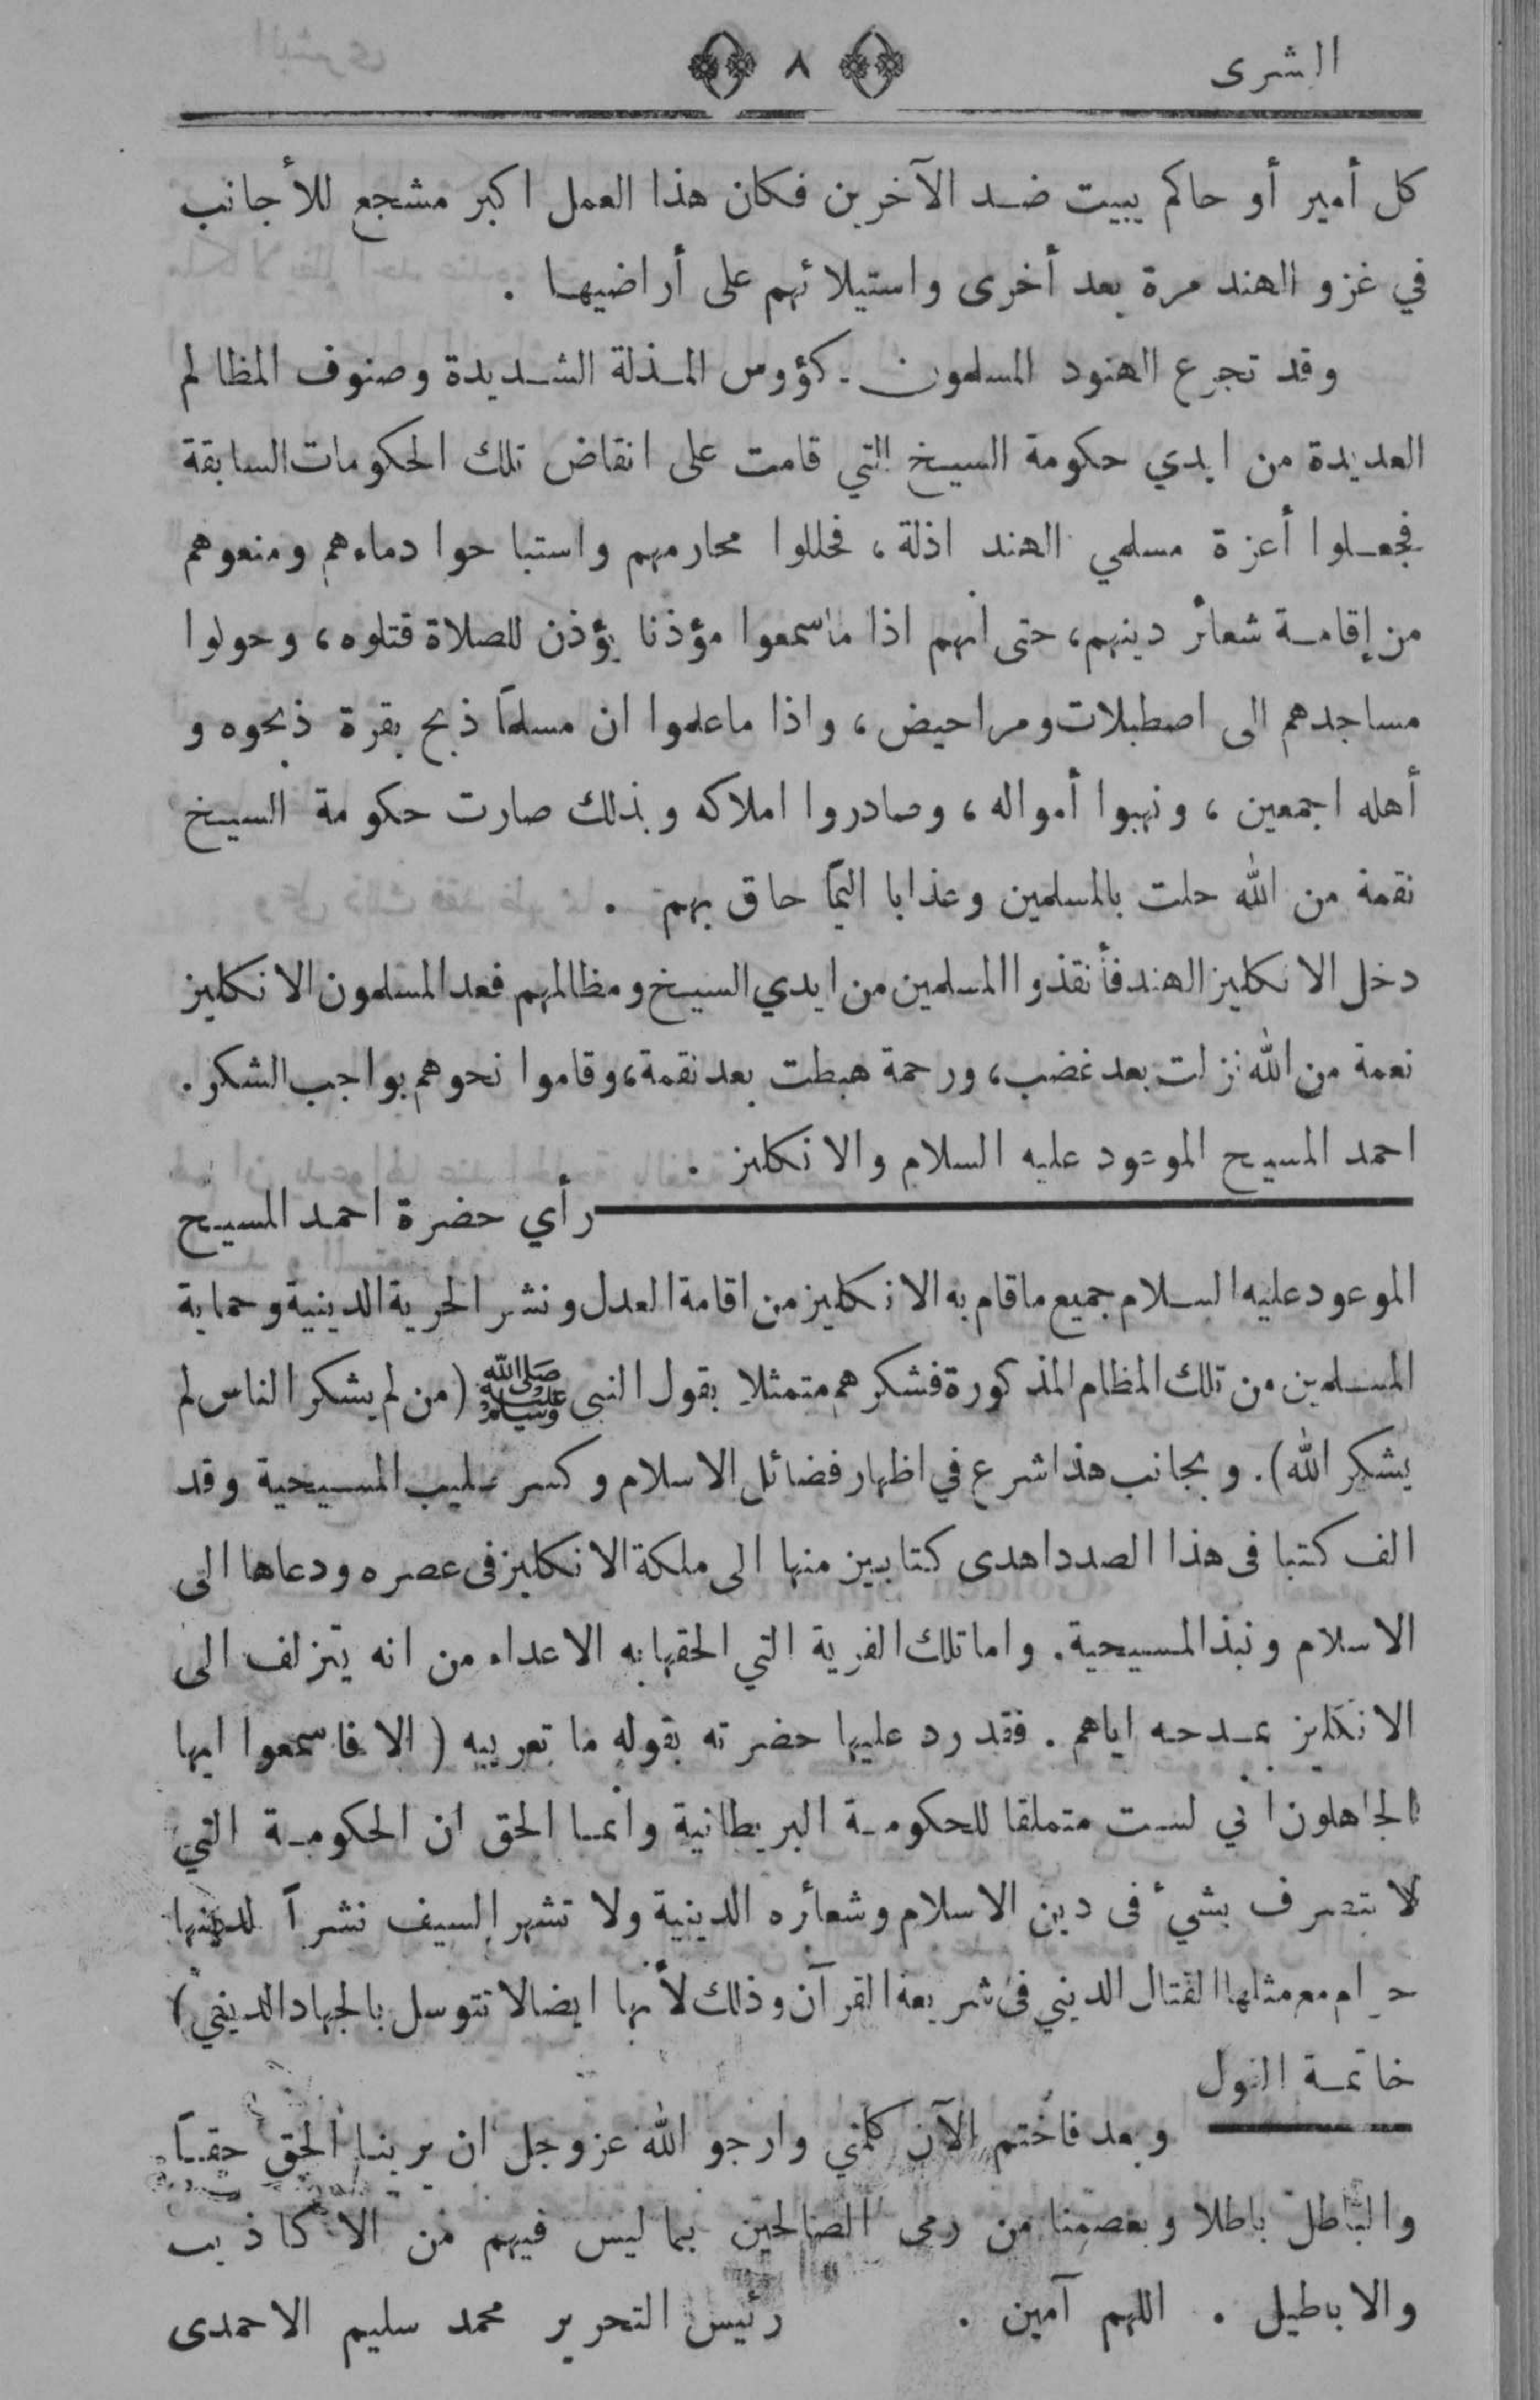 البشرى
٨
كل أمير أو حاكم يبيت ضد الآخرين فكان هذا العمل اكبر مشجع للأجانب
في غزو الهند مرة بعد أخرى واستيلائهم على أراضيها .
وقد تجرع الهنود المسلمون كؤوس المذلة الشديدة وصنوف المظالم
العديدة من ايدي حكومة السيخ التي قامت على انقاض تلك الحكومات السابقة
فجعلوا أعزة مسلمي الهند اذلة، فحللوا محارمهم واستباحوا دماءهم ومنعوهم
من إقامة شعائر دينهم، حتى انهم اذا ما سمعوا مؤذنا يؤذن للصلاة قتلوه، وحولوا
مساجدهم الى اصطبلات ومراحيض، واذا ما علموا ان مسلماً ذبح بقرة ذبحوه و
أهله اجمعين، ونهبوا أمواله، وصادروا املاكه وبذلك صارت حكومة السيخ
نقمة من الله حلت بالمسلمين وعذابا اليماً حاق بهم .
دخل الانكليز الهند فأنقذوا المسلمين من ايدي السيخ ومظالمهم فعد المسلمون الانكليز
نعمة من الله نزلت بعد غضب، ورحمة هبطت بعد نقمة، وقاموا نحوهم بواجب الشكر.
احمد المسيح الموعود عليه السلام والانكليز .
رأي حضرة احمد المسيح
الموعود عليه السلام جميع ما قام به الانكليز من اقامة العدل ونشر الحرية الدينية وحماية
المسلمين من تلك المظالم المذكورة فشكرهم متمثلا بقول النبي ﷺ (من لم يشكر الناس لم
يشكر الله). وبجانب هذا شرع في اظهار فضائل الاسلام وكسر صليب المسيحية وقد
الف كتبا فى هذا الصدد اهدى كتابين منها الى ملكة الانكليز فى عصره ودعاها الى
الاسلام ونبذ المسيحية. واما تلك الفرية التي الحقها به الاعداء من انه يتزلف الى
الانكليز بمدحه اياهم. فقد رد عليها حضرته بقوله ما تعريبه (الا فاسمعوا ايها
الجاهلون اني لست متملقا للحكومة البريطانية وانما الحق ان الحكومة التي
لا تتصرف بشيء فى دين الاسلام وشعائره الدينية ولا تشهر السيف نشراً لدينها
حرام مع مثلها القتال الديني فى شريعة القرآن وذلك لأنها ايضا لا تتوسل بالجهاد الديني)
خاتمة القول
وبعد فاختم الآن كلمتي وارجو الله عز وجل ان يرينا الحق حقاً
والباطل باطلا ويعصمنا من رمى الصالحين بما ليس فيهم من الاكاذيب
والاباطيل . اللهم آمين .
رئيس التحرير محمد سليم الاحمدى